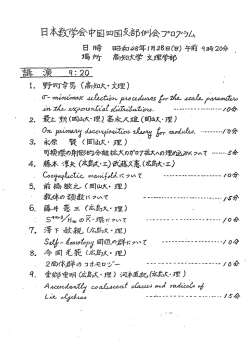 日本数学会中国四国支部例会プログラム
日時 昭和48年1月28日(日) 午前9時20分
場所 高知大学 文理学部
講演 9:20
1. 野町幸男 (高知大・文理)
σ-minimax selection procedures for the scale parameters
in the exponential distributions. 10分
2. (岡山大・理) (岡山大・理)
On primary decomposition theory for modules 15分
3. 永原 賢 (岡山大・理)
15分
4. 藤本 淳夫 (広島大・工) 武蔵義憲 (広島大・工)
Cosymplectic manifold について 10分
5. 前橋敏之 (岡山大・理)
群体の 10分
6. 藤井 (広島大・理)
S⁴ᵐ⁺³/Hₘ の K-環について 10分
7. 澤下 教親 (広島大・理)
Self-homotopy 同値の群について 10分
8. 今岡光範 (広島大・理)
2箇体群のコホモロジー 10分
9. 雲郷 (広島大・理) 河本直紀 (広島大・理)
Ascendantly coalescent classes and radicals of
Lie algebras 15分